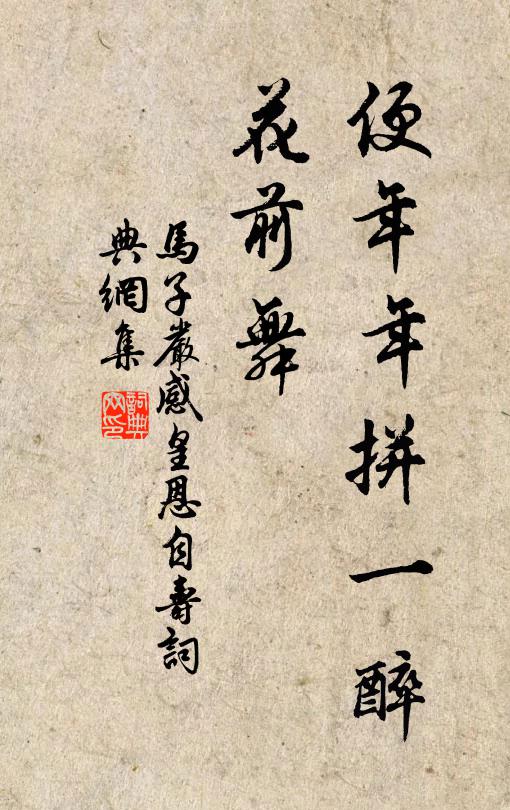 便年年拼一醉
花前舞
馬子嚴感皇恩自壽詞
典網集
詞典
网印